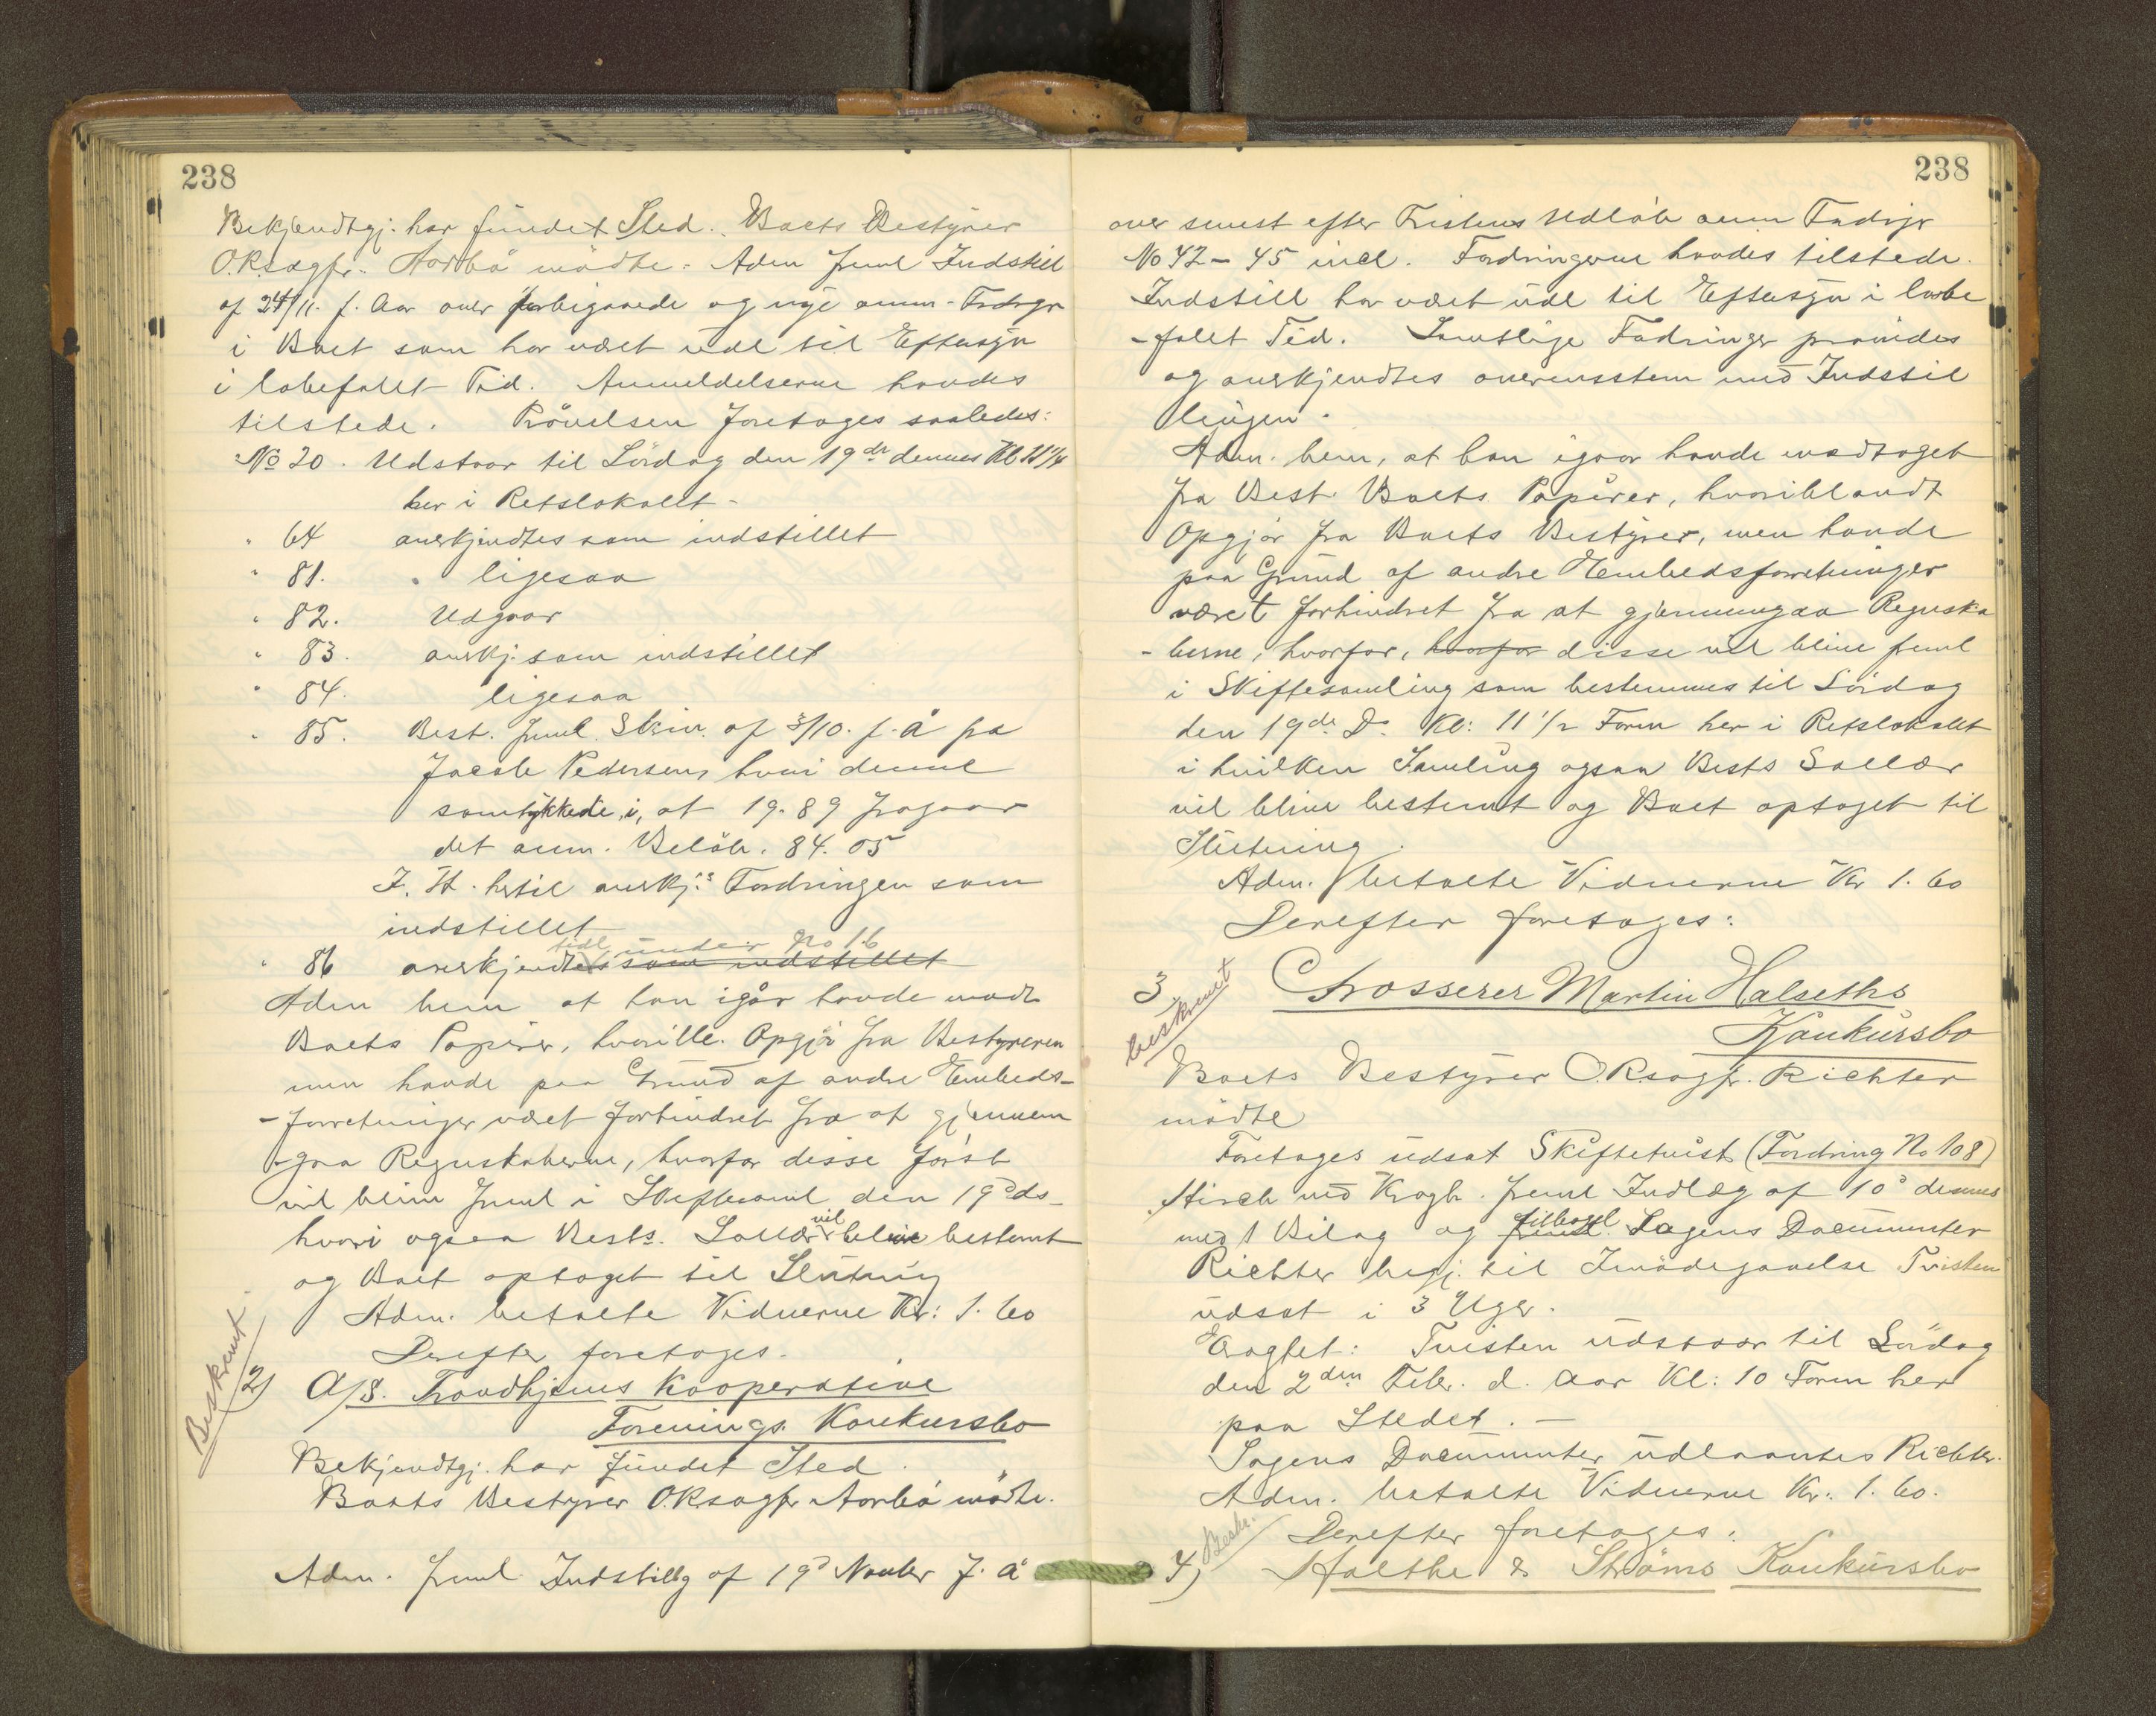 238
Bekjendtgj. har fundet Sted. Boets Bestyrer
O.R.sagfr. Aarbö mödte. Adm freml Indstill
af 24/11. f. Aar over forbigaaede og nye anm. Fordrgr
i Boet som har været udl til Eftersyn
i lovbefalet Tid. Anmeldelserne havdes
tilstede. Prövelsen foretoges saaledes:
No 20. Udstaar til Lördag den 19de dennes Kl. 11 1/4
her i Retslokalet -
" 64 anerkjendtes som indstillet
" 81. " ligesaa
" 82. Udgaar
" 83. anerkj. som indstillet
" 84. ligesaa
" 85. Best. freml. Skriv. af 3/10. f. å fra
Jacob Pedersen, hvori denne
samtykkede i, at 19.89 fragaar
det anm. Belöb. 84.05
I. H. hertil anerkj.s Fordringen som
indstillet
tidl under No 16
" 86 anerkjendtes som indstillet
Adm bem at han igår havde modt
Boets Papirer, hvoribl. Opgjör fra Bestyreren
men havde paa Grund af andre Embeds-
-forretninger været forhindret fra at gjennem
-gaa Regnskaberne, hvorfor disse först
vil blive freml i Skiftesaml den 19d ds-
hvori ogsaa Bests. Sallær vil blive bestemt
og Boet optaget til Slutning
Adm. betalte Vidnerne Kr: 1.60
Derefter foretoges.
Beskrevet.
2) A/S. Trondhjems Kooperative
Forenings Konkursbo
Bekjendtgj. har fundet Sted.
Boets Bestyrer O.R.sagfr Aarbö mödte.
Adm. freml Indstillg af 19d Novbr f. å
238
over senest efter Fristens Udlöb anm Fordrgr
No 42 - 45 incl. Fordringerne havdes tilstede.
Indstill har været udl til Eftersyn i lovbe
-falet Tid. Samtlige Fordringer prövedes
og anerkjendtes overensstem med Indstil
lingen.
Adm. bem, at han igaar havde modtaget
fra Best Boets Papirer, hvoriblandt
Opgjör fra Boets Bestyrer, men havde
paa Grund af andre Embedsforretninger
været forhindret fra at gjennemgaa Regnska
-berne, hvorfor, hvorfor disse vil blive freml
i Skiftesamling som bestemmes til Lördag
den 19de Ds. Kl: 11 1/2 Form her i Retslokalet
i hvilken Samling ogsaa Bests Sallær
vil blive bestemt og Boet optaget til
Slutning.
Adm. betalte Vidnerne Kr 1.60
Derefter foretoges:
3 Grosserer Martin Halseths
beskrevet
Konkursbo
Boets Bestyrer O.R.sagfr. Richter
mödte
Foretoges udsat Skiftetvist (Fordring No 108)
Hirsch ved Krogh. freml Indlæg af 10d dennes
med 1 Bilag og freml. tilbagel Sagens Documenter
Richter begj. til Imödegaaelse Tvisten
udsat i 3 Uger.
Eragtet: Tvisten udstaar til Lördag
den 2den Febr. d. Aar Kl: 10 Form her
paa Stedet. -
Sagens Documenter udlaantes Richter.
Adm. betalte Vidnerne Kr: 1.60.
Derefter foretoges:
Beskr.
4) Holthe & Ströms Konkursbo